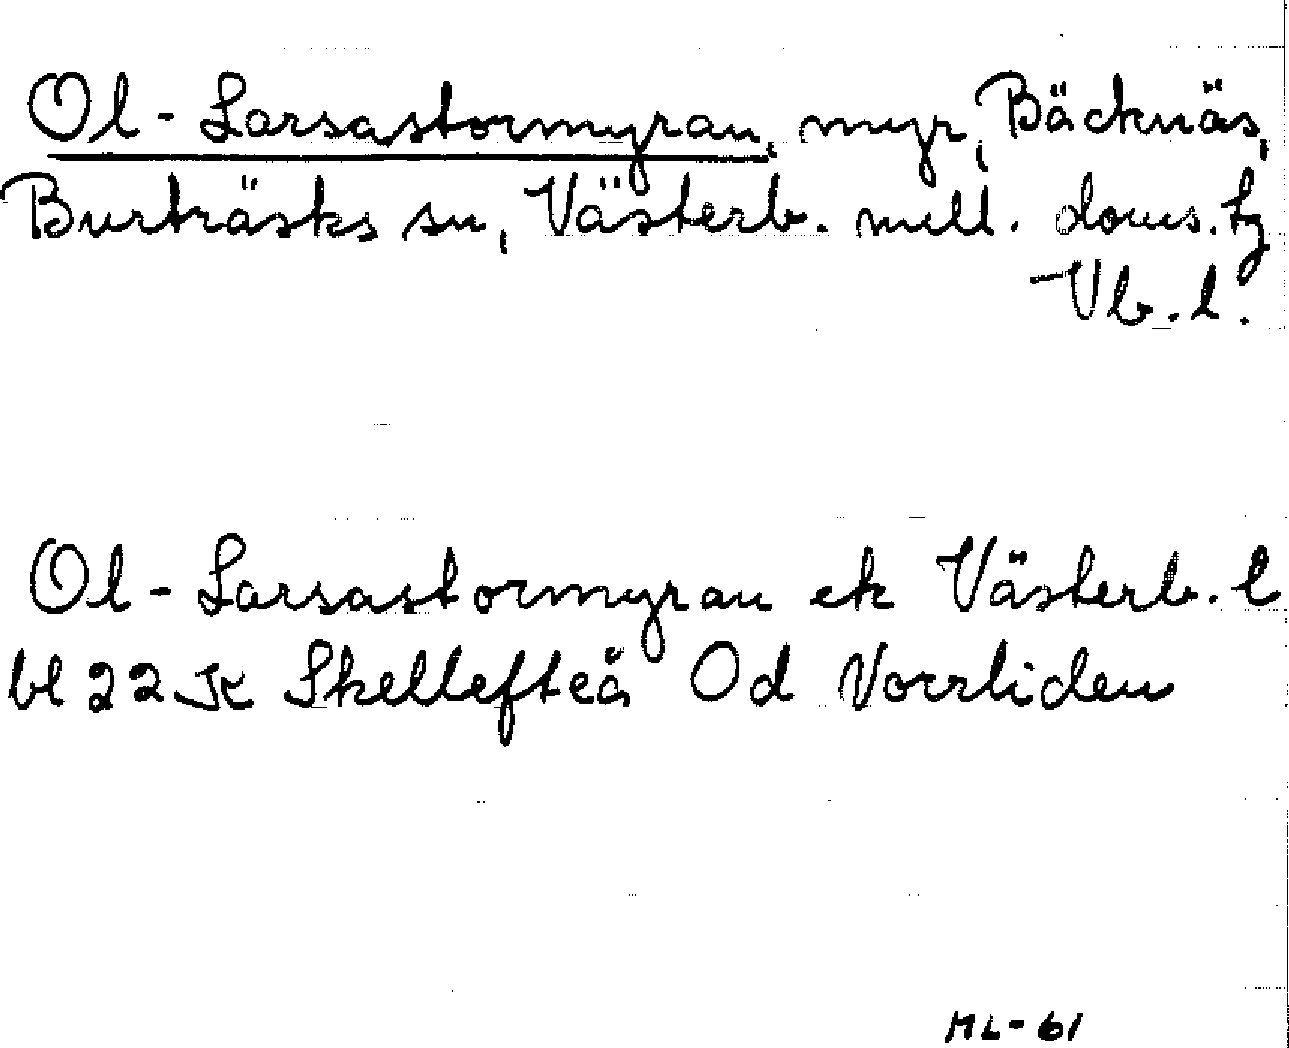 Ol-Larsastormyran, myr, Bäcknäs,
Burträsks sn, Västerb. mell. doms. tg
Vb. l.
Ol-Larsastormyran ek Västerb. l
bl 22 K Skellefteå Od Vorrliden
ML-61